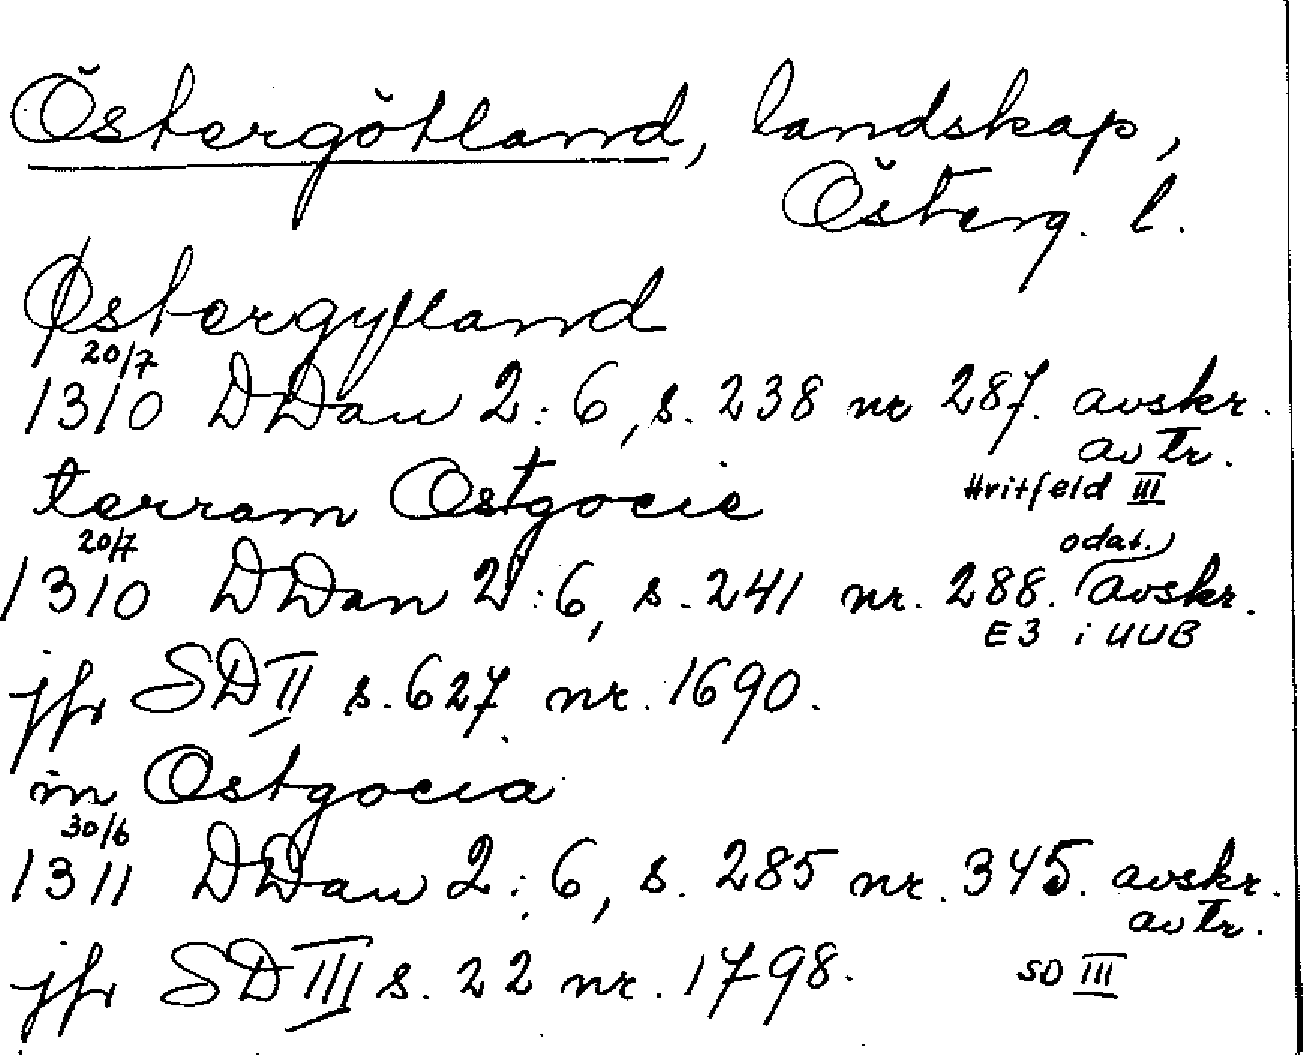 Östergötland, landskap,
Österg. l.
Østergylland
20/7
1310 DDan 2:6, s. 238 nr 287. avskr.
av tr.
terram Ostgocie Hvitfeld III
20/7 odat.
1310 DDan 2:6, s. 241 nr. 288. avskr.
E3 i UUB
jfr SD II s. 627 nr. 1690.
in Ostgocia
30/6
1311 DDan 2:6, s. 285 nr. 345. avskr.
av tr.
jfr SD III s. 22 nr. 1798. SD III